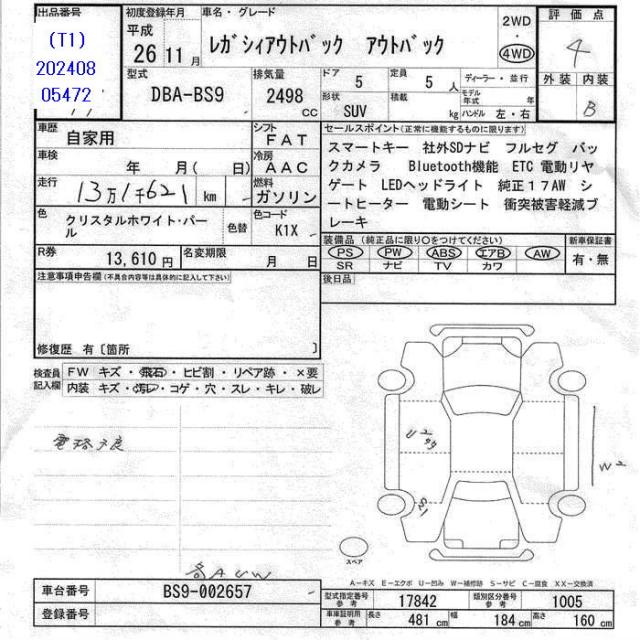 出品番号 初度登録年月 車名・グレード 評価点
(T1) 平成 2WD
202408 26 11月 レガシィアウトバック アウトバック 4WD 4
05472 型式 排気量 ドア 5 定員 5人 ディーラー・並行 外装 内装
DBA-BS9 2498 CC 形状 SUV 積載 kg モデル年式 年 ハンドル 左・右 B
車歴 自家用 シフト FAT セールスポイント(正常に機能するものに限ります)
車検 年 月( 日) 冷房 AAC スマートキー 社外SDナビ フルセグ バッ
走行 13万1千621 km 燃料 ガソリン クカメラ Bluetooth機能 ETC 電動リヤ
ゲート LEDヘッドライト 純正17AW シ
色 クリスタルホワイト・パール 色替 色コード K1X ートヒーター 電動シート 衝突被害軽減ブ
レーキ
R券 13,610円 名変期限 月 日 装備品(純正品に限り○をつけてください) 新車保証書
PS PW ABS エアB AW 有・無
SR ナビ TV カワ
注意事項申告欄(不具合内容等は具体的に記入して下さい) 後日品
修復歴 有〔箇所 〕
検査員 FW キズ・飛石・ヒビ割・リペア跡・×要
記入欄 内装 キズ・汚レ・コゲ・穴・スレ・キレ・破レ
U2
S1
W2
スペア
A-キズ E-エクボ U-凹み W-補修跡 S-サビ C-腐食 XX-交換済
車台番号 BS9-002657 型式指定番号 参考 17842 類別区分番号 参考 1005
登録番号 車庫証明用 参考 長さ 481 cm 幅 184 cm 高さ 160 cm